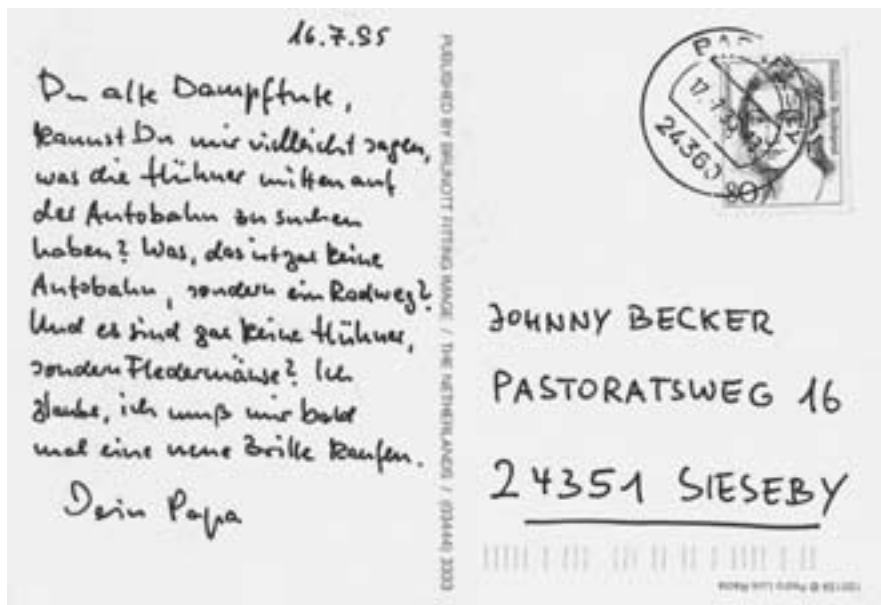 16.7.95
Du alte Dampftute,
kannst Du mir vielleicht sagen,
was die Hühner mitten auf
der Autobahn zu suchen
haben? Was, das ist gar keine
Autobahn, sondern ein Radweg?
Und es sind gar keine Hühner,
sondern Fledermäuse? Ich
glaube, ich muß mir bald
mal eine neue Brille kaufen.
Dein Papa
PUBLISHED BY BRUNOTT FITTING IMAGE / THE NETHERLANDS / (03444) 3333
17.7.95
24360
80
JOHNNY BECKER
PASTORATSWEG 16
24351 SIESEBY